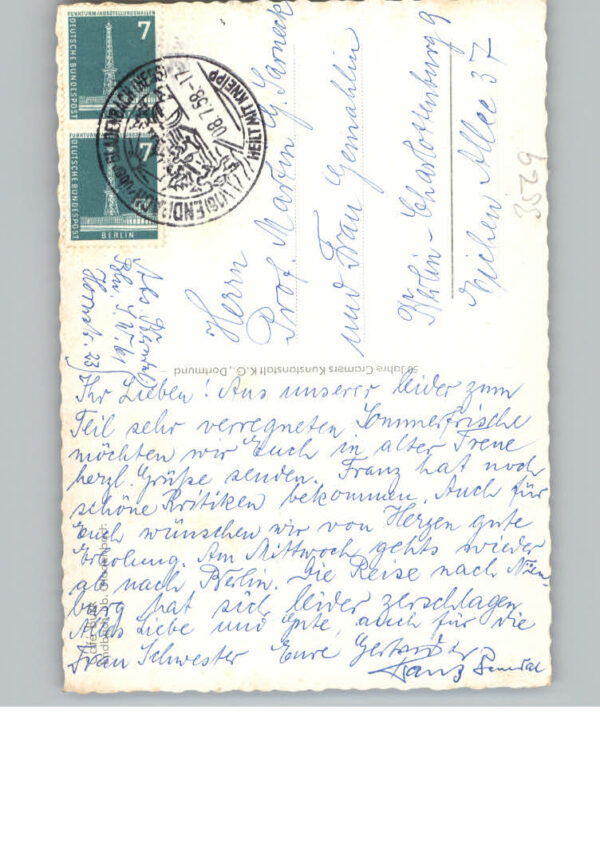 7
DEUTSCHE BUNDESPOST
7
DEUTSCHE BUNDESPOST
BERLIN
08.7.58.-17
HEILT MIT KNEIPP
Herrn
Prof. Martin G. Sarneck
und Frau Gemahlin
Berlin-Charlottenburg 9
Eichen Allee 37
3529
Abs.
Bln. S.W. 61
23
50 Jahre Cramers Kunstanstalt K.G., Dortmund
Ihr Lieben! Aus unserer leider zum
Teil sehr verregneten Sommerfrische
möchten wir Euch in alter Treue
herzl. Grüße senden. Franz hat noch
schöne Kritiken bekommen. Auch für
Euch wünschen wir von Herzen gute
Erholung. Am Mittwoch gehts wieder
ab nach Berlin. Die Reise nach
burg hat sich leider zerschlagen.
Alles Liebe und Gute, auch für die
Frau Schwester Eure
Franz